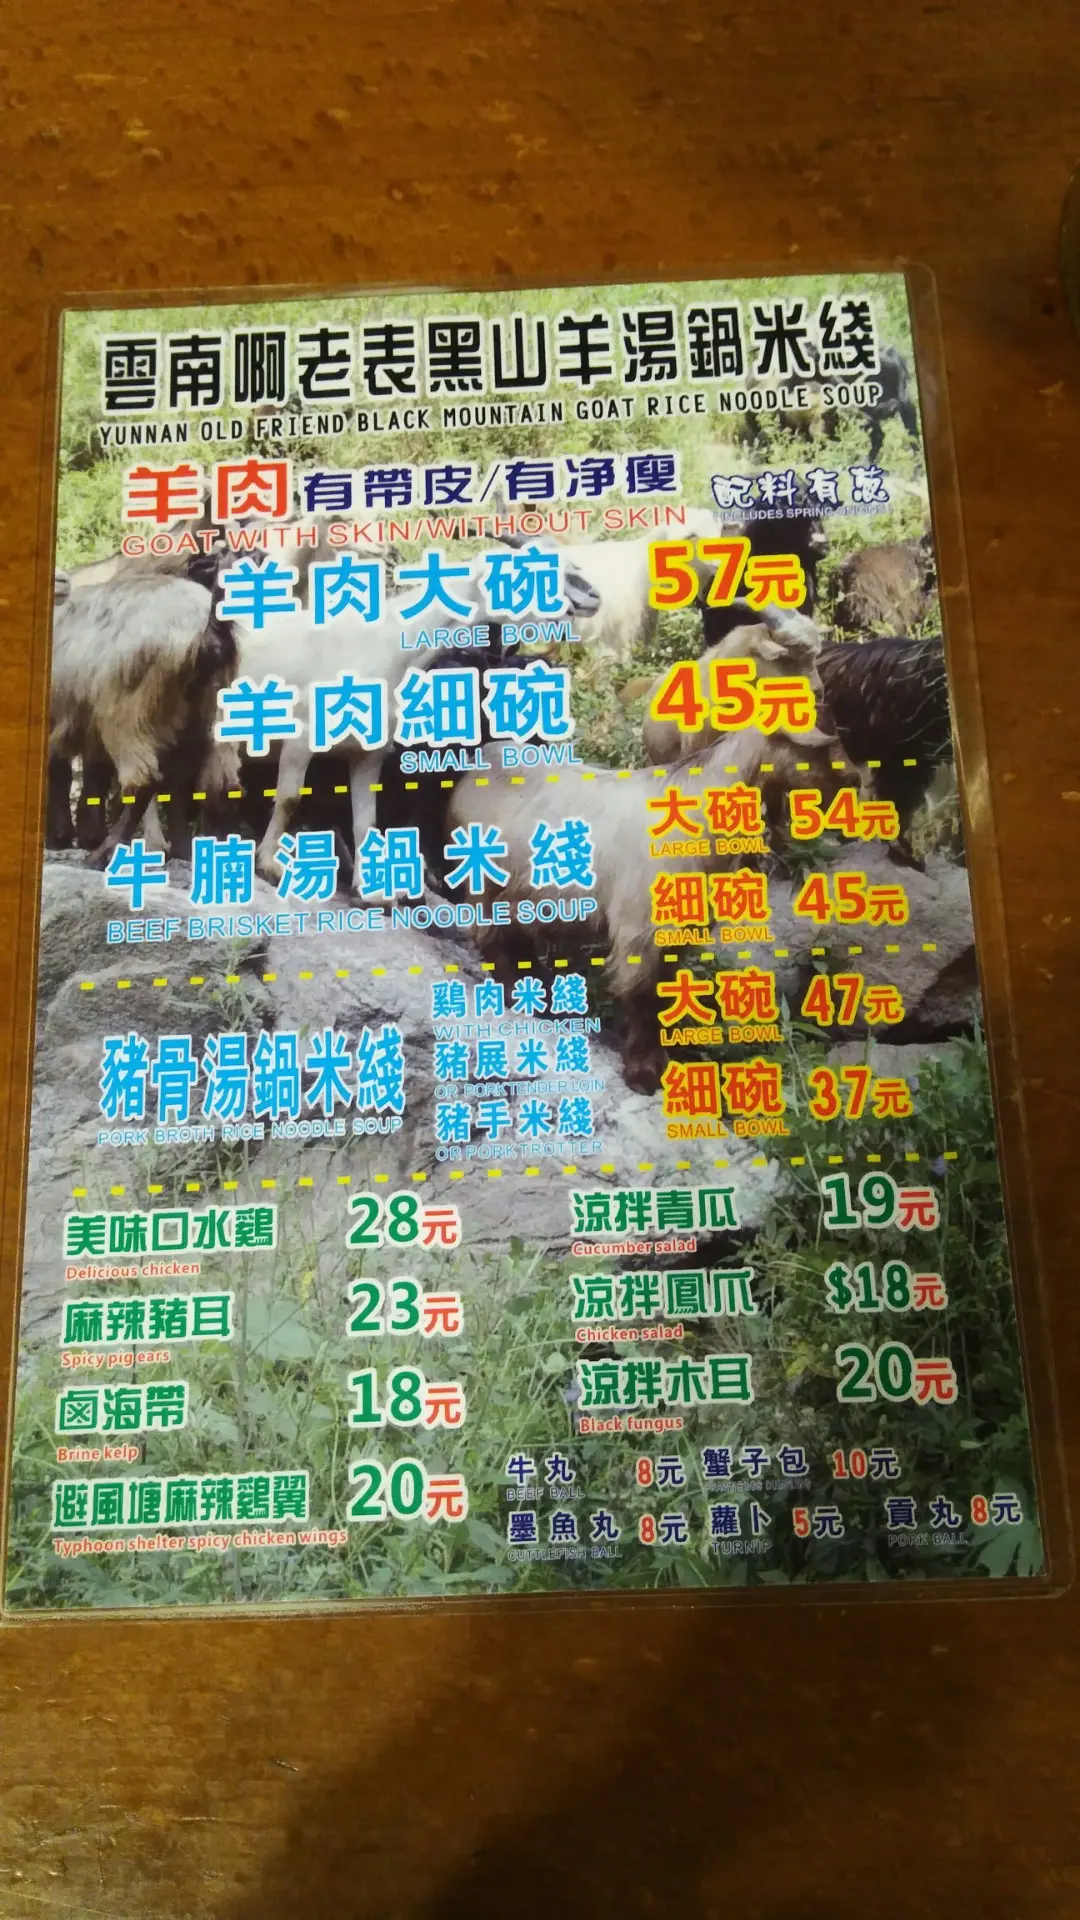 雲南啊老表黑山羊湯鍋米綫
YUNNAN OLD FRIEND BLACK MOUNTAIN GOAT RICE NOODLE SOUP
羊肉有帶皮/有净瘦 配料有葱
GOAT WITH SKIN/WITHOUT SKIN INCLUDES SPRING ONIONS
羊肉大碗 57元
LARGE BOWL
羊肉細碗 45元
SMALL BOWL
牛腩湯鍋米綫
BEEF BRISKET RICE NOODLE SOUP
大碗 54元
LARGE BOWL
細碗 45元
SMALL BOWL
豬骨湯鍋米綫
PORK BROTH RICE NOODLE SOUP
鷄肉米綫
WITH CHICKEN
豬展米綫
OR PORK TENDER LOIN
豬手米綫
OR PORK TROTTER
大碗 47元
LARGE BOWL
細碗 37元
SMALL BOWL
美味口水鷄 28元
Delicious chicken
麻辣豬耳 23元
Spicy pig ears
鹵海帶 18元
Brine kelp
避風塘麻辣鷄翼 20元
Typhoon shelter spicy chicken wings
涼拌青瓜 19元
Cucumber salad
凉拌鳳爪 $18元
Chicken salad
涼拌木耳 20元
Black fungus
牛丸 8元 蟹子包 10元
BEEF BALL
墨魚丸 8元 蘿卜 5元 貢丸 8元
CUTTLEFISH BALL TURNIP PORK BALL